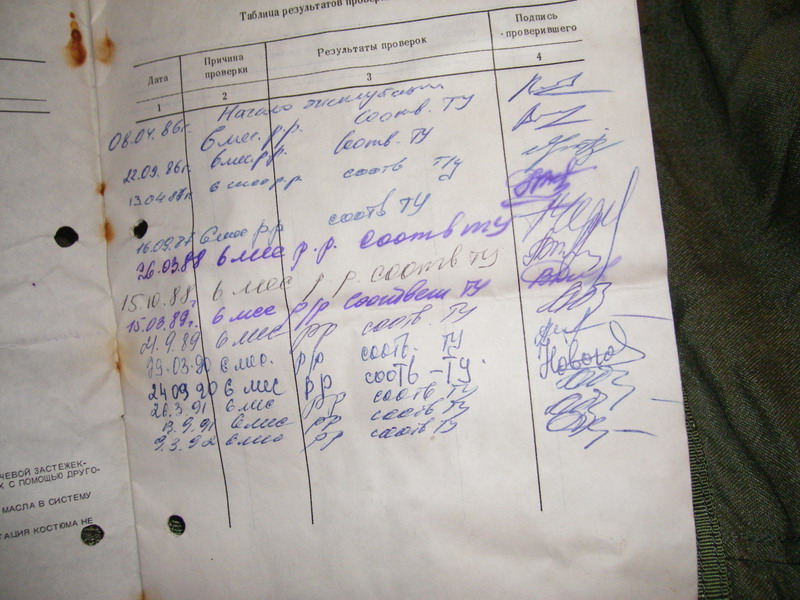 Таблица результатов провер
Дата
Причина проверки
Результаты проверок
Подпись проверившего
1 2 3 4
08.04.86г. Начало эксплуатации
6 мес. р.р. соотв. ТУ
22.09.86г. 6 мес р.р. соотв. ТУ
13.04.87г. 6 мес р.р. соотв ТУ
16.09.87 6 мес р.р соотв ТУ
26.03.88 6 мес р.р. соотв ТУ
15.10.88г. 6 мес р.р. соотв ТУ
15.03.89г. 6 мес р/р соответ ТУ
21.9.89 6 мес рр соотв. ТУ
29-03-90 6 мес. рр соотв. ТУ
24 09 90 6 мес рр соотв-ТУ.
26.3.91 6 мес рр соотв ТУ
13.9.91 6 мес рр соотв ТУ
9.3.92 6 мес рр соотв ТУ
ЧЕВОЙ ЗАСТЕЖЕК-
Х С ПОМОЩЬЮ ДРУГО-
МАСЛА В СИСТЕМУ
ТАЦИЯ КОСТЮМА НЕ